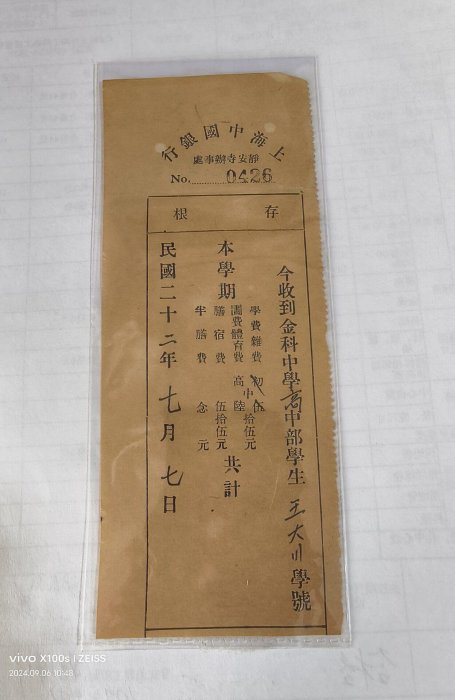 上海中國銀行
靜安寺辦事處
No. 0426
存根
今收到金科中學高中部學生 王大川 學號
本學期
學費雜費
圖費體育費
初伍
高中陸拾伍元
膳宿費 伍拾伍元
半膳費 念元
共計
民國二十二年七月七日
vivo X100s | ZEISS
2024.09.06 10:48